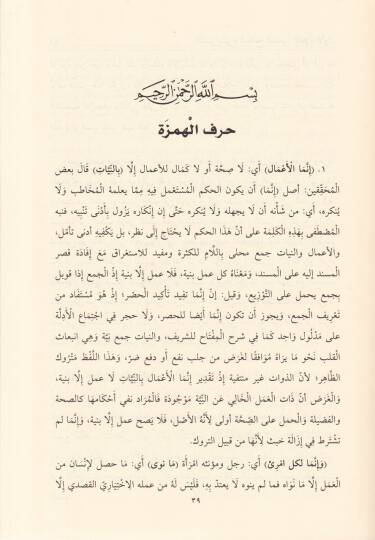 بِسْمِ اللَّهِ الرَّحْمَنِ الرَّحِيمِ
حرف الْهمزَة
١. (إِنَّمَا الْأَعْمَال) أَي: لَا صِحَّة أَو لَا كَمَال للأعمال إِلَّا (بِالنِّيَّاتِ) قَالَ بعض
الْمُحَقِّقين: أصل (إِنَّمَا) أَن يكون الحكم الْمُسْتَعْمل فِيهِ مِمَّا يعلمهُ الْمُخَاطب وَلَا
يُنكره، أَي: من شَأْنه أَن لَا يجهله وَلَا يُنكره حَتَّى إِن إِنكاره يَزُول بِأَدْنَى تَنْبِيه، فنبه
الْمُصْطَفى بِهَذِهِ الْكَلِمَة على أَنَّ هَذَا الحكم لَا يحْتَاج إِلَى نظر، بل يَكْفِيهِ أدنى تأمّل،
والأعمال والنيات جمع محلى بِاللَّامِ للكثرة ومفيد للاستغراق مَعَ إِفَادَة قصر
الْمسند إِلَيْهِ على الْمسند، وَمَعْنَاهُ كل عمل بنية، فَلَا عمل إِلَّا بنية إِذْ الْجمع إِذا قوبل
بِجمع يحمل على التَّوْزِيع، وَقيل: إِنَّ إِنَّمَا تفِيد تَأْكِيد الْحصْر؛ إِذْ هُوَ مُسْتَفَاد من
تَعْرِيف الْجمع، وَيجوز أَن تكون إِنَّمَا أَيْضا للحصر، وَلَا حجر فِي اجْتِمَاع الْأَدِلَّة
على مَدْلُول وَاحِد كَمَا فِي شرح الْمِفْتَاح للشريف، والنيات جمع نِيَّة وَهِي انبعاث
الْقلب نَحْو مَا يرَاهُ مُوَافقًا لغَرَض من جلب نفع أَو دفع ضرّ، وَهَذَا اللَّفْظ مَتْرُوك
الظَّاهِر؛ لأنّ الذوات غير منتفية إِذْ تَقْدِير إِنَّمَا الْأَعْمَال بِالنِّيَّاتِ لَا عمل إِلَّا بنية،
وَالْغَرَض أَنَّ ذَات الْعَمَل الْخَالِي عَن النِّيَّة مَوْجُودَة فَالْمُرَاد نفي أَحْكَامهَا كالصحة
والفضيلة وَالْحمل على الصِّحَّة أولى لِأَنَّهُ الأَصْل، فَلَا يَصح عمل إِلَّا بنية، وَإِنَّمَا لم
تشْتَرط فِي إِزَالَة خبث لِأَنَّهَا من قبيل التروك.
(وَإِنَّمَا لكل امْرِئ) أَي: رجل ومؤنثه امْرَأَة (مَا نوى) أَي: مَا حصل لإِنْسَان من
الْعَمَل إِلَّا مَا نَوَاه فما لم ينوه لَا يعتدّ بِهِ، فَلَيْسَ لَهُ من عمله الِاخْتِيَارِيّ القصدي إِلَّا
٣٩